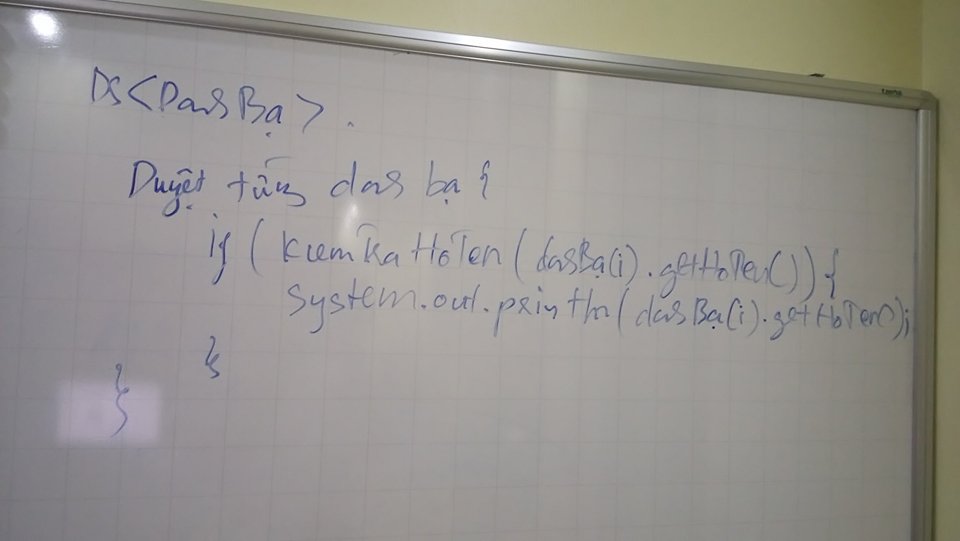 DS<DanhBạ>.
Duyệt từng danh bạ {
if (KiemTraHoTen(danhBạ(i).getHoTen()){
system.out.println(danhBạ(i).getHoTen();
}
}